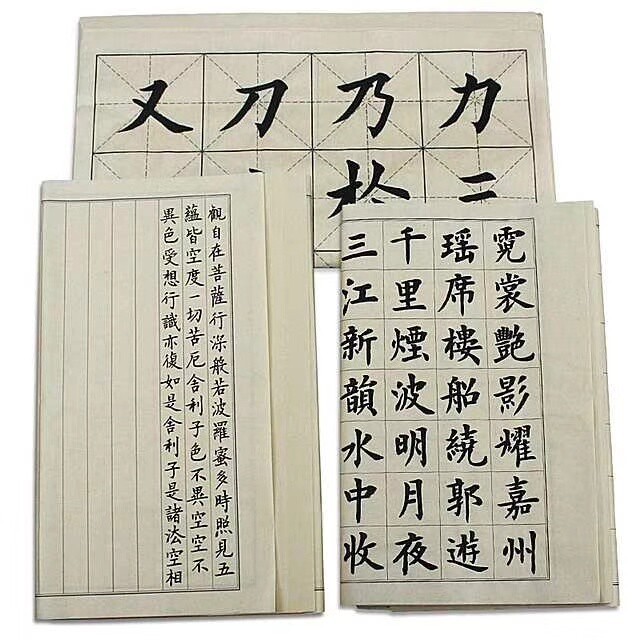 力
乃
刀
又
觀自在菩薩行深般若波羅蜜多時照見五
蘊皆空度一切苦厄舍利子色不異空空不
異色受想行識亦復如是舍利子是諸法空相
霓裳艷影耀嘉州
瑶席樓船繞郭遊
千里煙波明月夜
三江新韻水中收